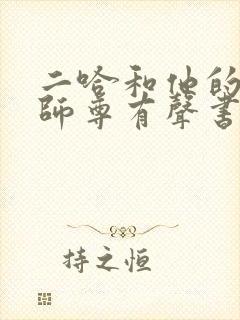 二哈和他的
師尊有聲書
持之恒